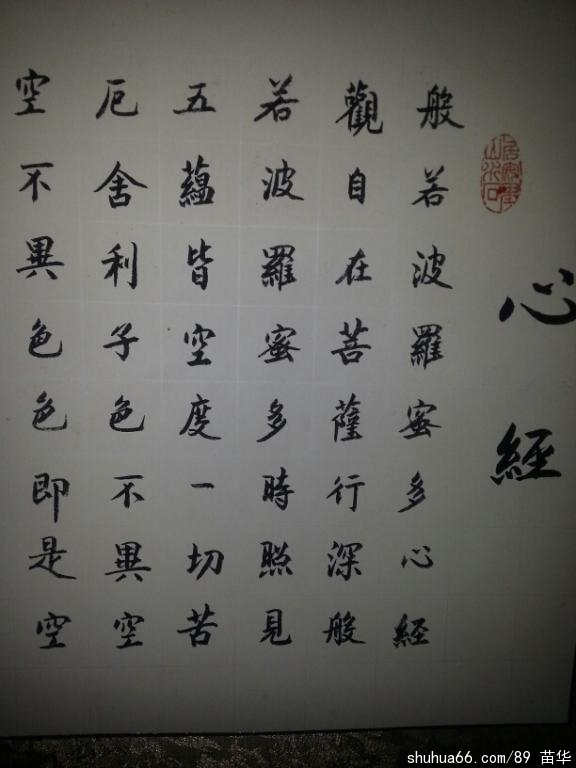 心經
般若波羅蜜多心經
觀自在菩薩行深般
若波羅蜜多時照見
五蘊皆空度一切苦
厄舍利子色不異空
空不異色色即是空
shuhua66.com/89 苗华